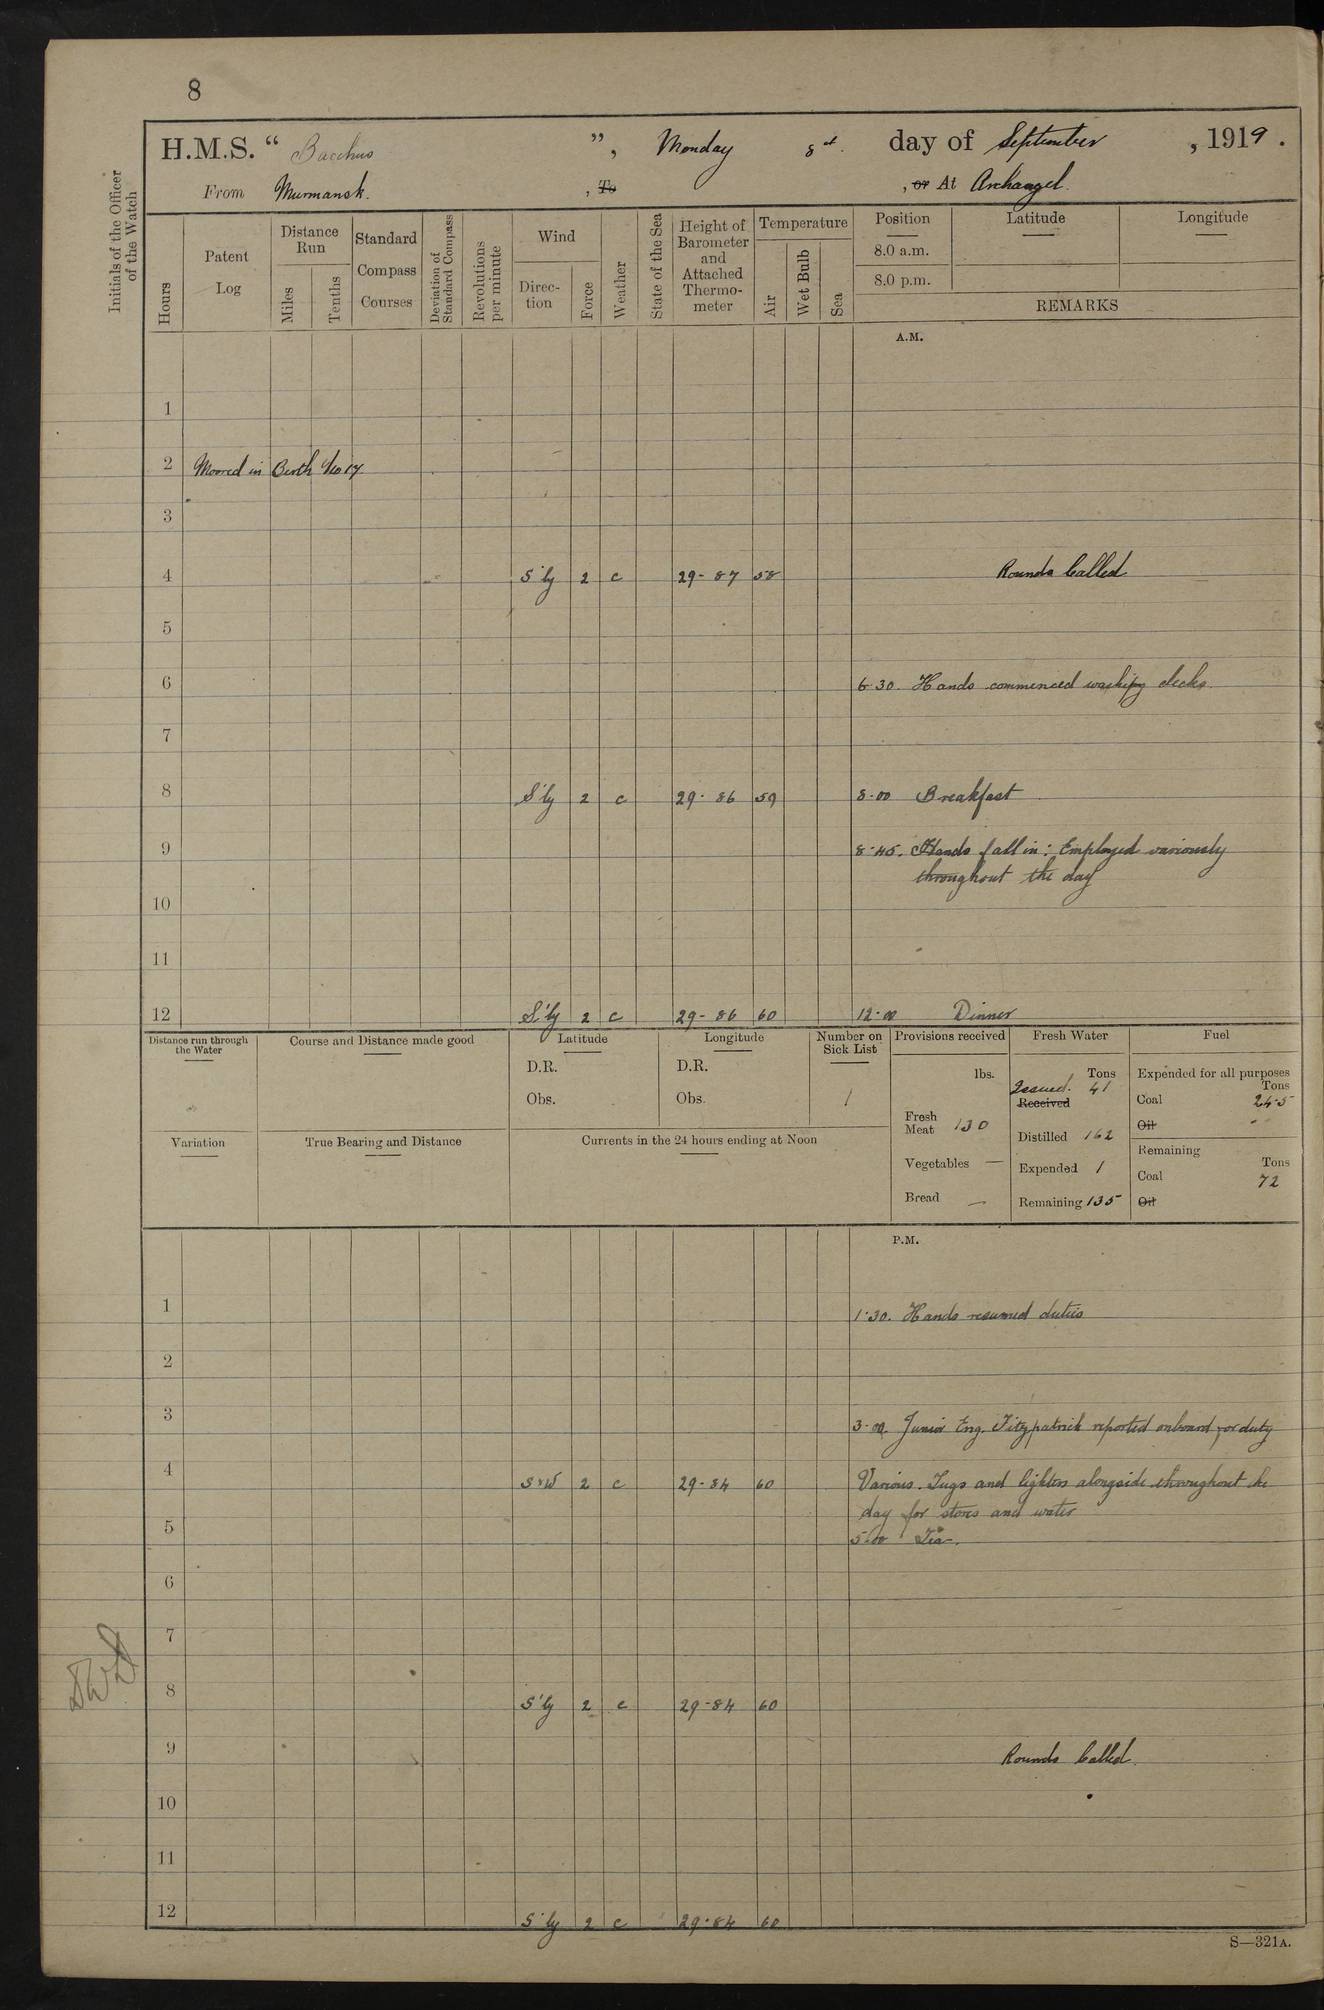 8
H.M.S. “ Bacchus ”, Monday 8th day of September, 1919.
From Murmansk. , To , or At Archangel.
Initials of the Officer of the Watch
Hours
Patent Log
Distance Run
Miles
Tenths
Standard Compass Courses
Deviation of Standard Compass
Revolutions per minute
Wind
Direction
Force
Weather
State of the Sea
Height of Barometer and Attached Thermometer
Temperature
Air
Wet Bulb
Sea
Position Latitude Longitude
8.0 a.m.
8.0 p.m.
REMARKS
A.M.
1
2 Moored in Berth No 17
3
4 S'ly 2 c 29-87 58 Rounds Called
5
6 6.30. Hands commenced washing decks.
7
8 S'ly 2 c 29-86 59 8-00 Breakfast
9 8-45. Hands fall in: Employed variously
throughout the day
10
11
12 S'ly 2 c 29-86 60 12-00 Dinner
Distance run through the Water
Course and Distance made good
Latitude
D.R.
Obs.
Longitude
D.R.
Obs.
Number on Sick List
1
Variation
True Bearing and Distance
Currents in the 24 hours ending at Noon
Provisions received
lbs.
Fresh Meat 130
Vegetables —
Bread —
Fresh Water
Tons
Issued. 41
Received
Distilled 162
Expended 1
Remaining 135
Fuel
Expended for all purposes
Tons
Coal 24-5
Oil
Remaining
Tons
Coal 72
Oil
P.M.
1 1-30. Hands resumed duties
2
3 3-00. Junior Eng. Fitzpatrick reported onboard for duty
4 S'W 2 c 29-84 60 Various. Tugs and lighters alongside throughout the
day for stores and water
5 5-00 Tea.
6
7
8 S'ly 2 c 29-84 60
9 Rounds Called.
10
11
12 S'ly 2 c 29-84 60
S—321A.